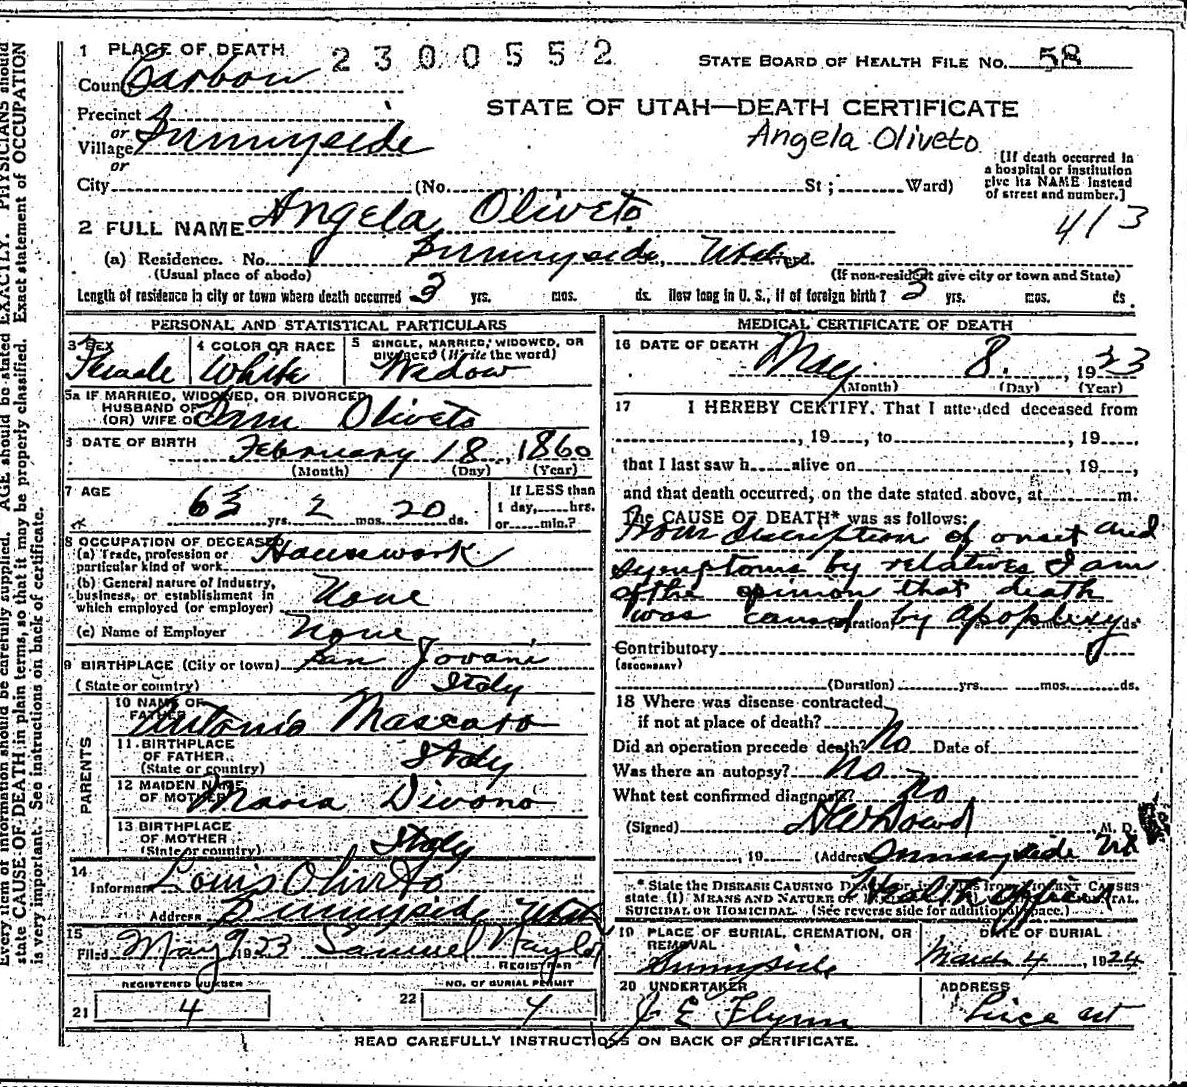 1 PLACE OF DEATH
2300552
STATE BOARD OF HEALTH FILE No. 58
County Carbon
STATE OF UTAH—DEATH CERTIFICATE
Precinct
Angela Oliveto
or
Village Sunnyside
or
City (No. St; Ward)
[If death occurred in
a hospital or institution
give its NAME instead
of street and number.]
2 FULL NAME Angela Oliveto
413
(a) Residence. No. Sunnyside, Utah
(Usual place of abode) (If non-resident give city or town and State)
Length of residence in city or town where death occurred 3 yrs. mos. ds. How long in U. S., if of foreign birth? 3 yrs. mos. ds.
PERSONAL AND STATISTICAL PARTICULARS
3 SEX
Female
4 COLOR OR RACE
White
5 SINGLE, MARRIED, WIDOWED, OR
DIVORCED (Write the word)
Widow
5a IF MARRIED, WIDOWED, OR DIVORCED
HUSBAND OF
(OR) WIFE OF Oliveto
6 DATE OF BIRTH
February 18, 1860
(Month) (Day) (Year)
7 AGE
63 yrs. 2 mos. 20 ds.
If LESS than
1 day, hrs.
or min.?
8 OCCUPATION OF DECEASED
(a) Trade, profession or
particular kind of work Housework
(b) General nature of industry,
business, or establishment in
which employed (or employer) None
(c) Name of Employer None
9 BIRTHPLACE (City or town) San Jovani
(State or country) Italy
PARENTS
10 NAME OF
FATHER Antonio Mascaro
11 BIRTHPLACE
OF FATHER
(State or country) Italy
12 MAIDEN NAME
OF MOTHER Maria Divono
13 BIRTHPLACE
OF MOTHER
(State or country) Italy
14
Informant Louis Oliveto
Address Sunnyside Utah
15
Filed May 9 1923 Samuel Naylor
REGISTRAR
REGISTERED NUMBER
21 4
NO. OF BURIAL PERMIT
22 4
MEDICAL CERTIFICATE OF DEATH
16 DATE OF DEATH
May 8, 1923
(Month) (Day) (Year)
17 I HEREBY CERTIFY, That I attended deceased from
, 19 , to , 19 ,
that I last saw h alive on , 19 ,
and that death occurred, on the date stated above, at m.
The CAUSE OF DEATH* was as follows:
From description of onset and
symptoms by relatives I am
of the opinion that death
was caused by apoplexy
(Duration) ds.
Contributory
(SECONDARY)
(Duration) yrs. mos. ds.
18 Where was disease contracted
if not at place of death? No
Did an operation precede death? No Date of
Was there an autopsy? No
What test confirmed diagnosis? No
(Signed) M. D.
, 19 (Address) Sunnyside Ut
Health Officer
* State the DISEASE CAUSING DEATH, or in deaths from VIOLENT CAUSES
state (1) MEANS AND NATURE OF
SUICIDAL OR HOMICIDAL. (See reverse side for additional space.)
19 PLACE OF BURIAL, CREMATION, OR
REMOVAL
Sunnyside
DATE OF BURIAL
March 4, 1924
20 UNDERTAKER
J E Flynn
ADDRESS
Price ut
READ CAREFULLY INSTRUCTIONS ON BACK OF CERTIFICATE.
Every item of information should be carefully supplied. AGE should be stated EXACTLY. PHYSICIANS should
state CAUSE OF DEATH in plain terms, so that it may be properly classified. Exact statement of OCCUPATION
is very important. See instructions on back of certificate.